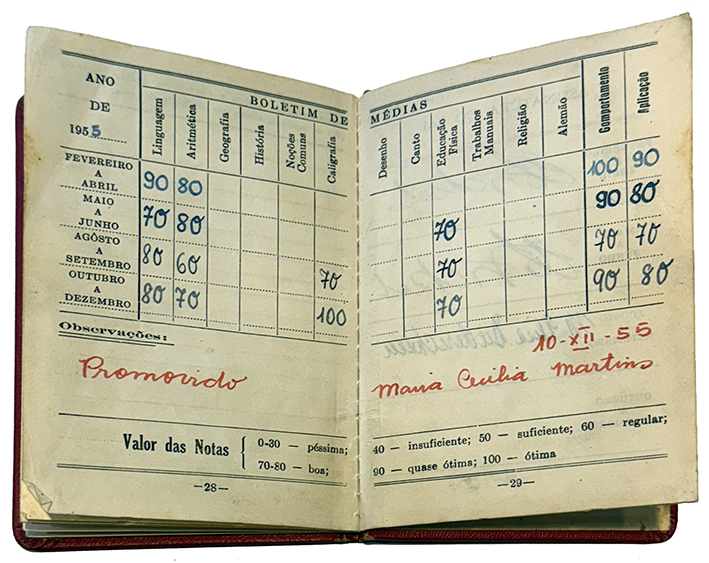 ANO
DE
1955
BOLETIM DE MÉDIAS
Linguagem
Aritmética
Geografia
História
Noções Comuns
Caligrafia
Desenho
Canto
Educação Física
Trabalhos Manuais
Religião
Alemão
Comportamento
Aplicação
FEVEREIRO A ABRIL 90 80 100 90
MAIO A JUNHO 70 80 70 90 80
AGÔSTO A SETEMBRO 80 60 70 70 70 70
OUTUBRO A DEZEMBRO 80 70 100 70 90 80
Observações:
Promovido
10-XII-55
Maria Cecilia Martins
Valor das Notas
0-30 — péssima; 40 — insuficiente; 50 — suficiente; 60 — regular;
70-80 — boa; 90 — quase ótima; 100 — ótima
—28—
—29—